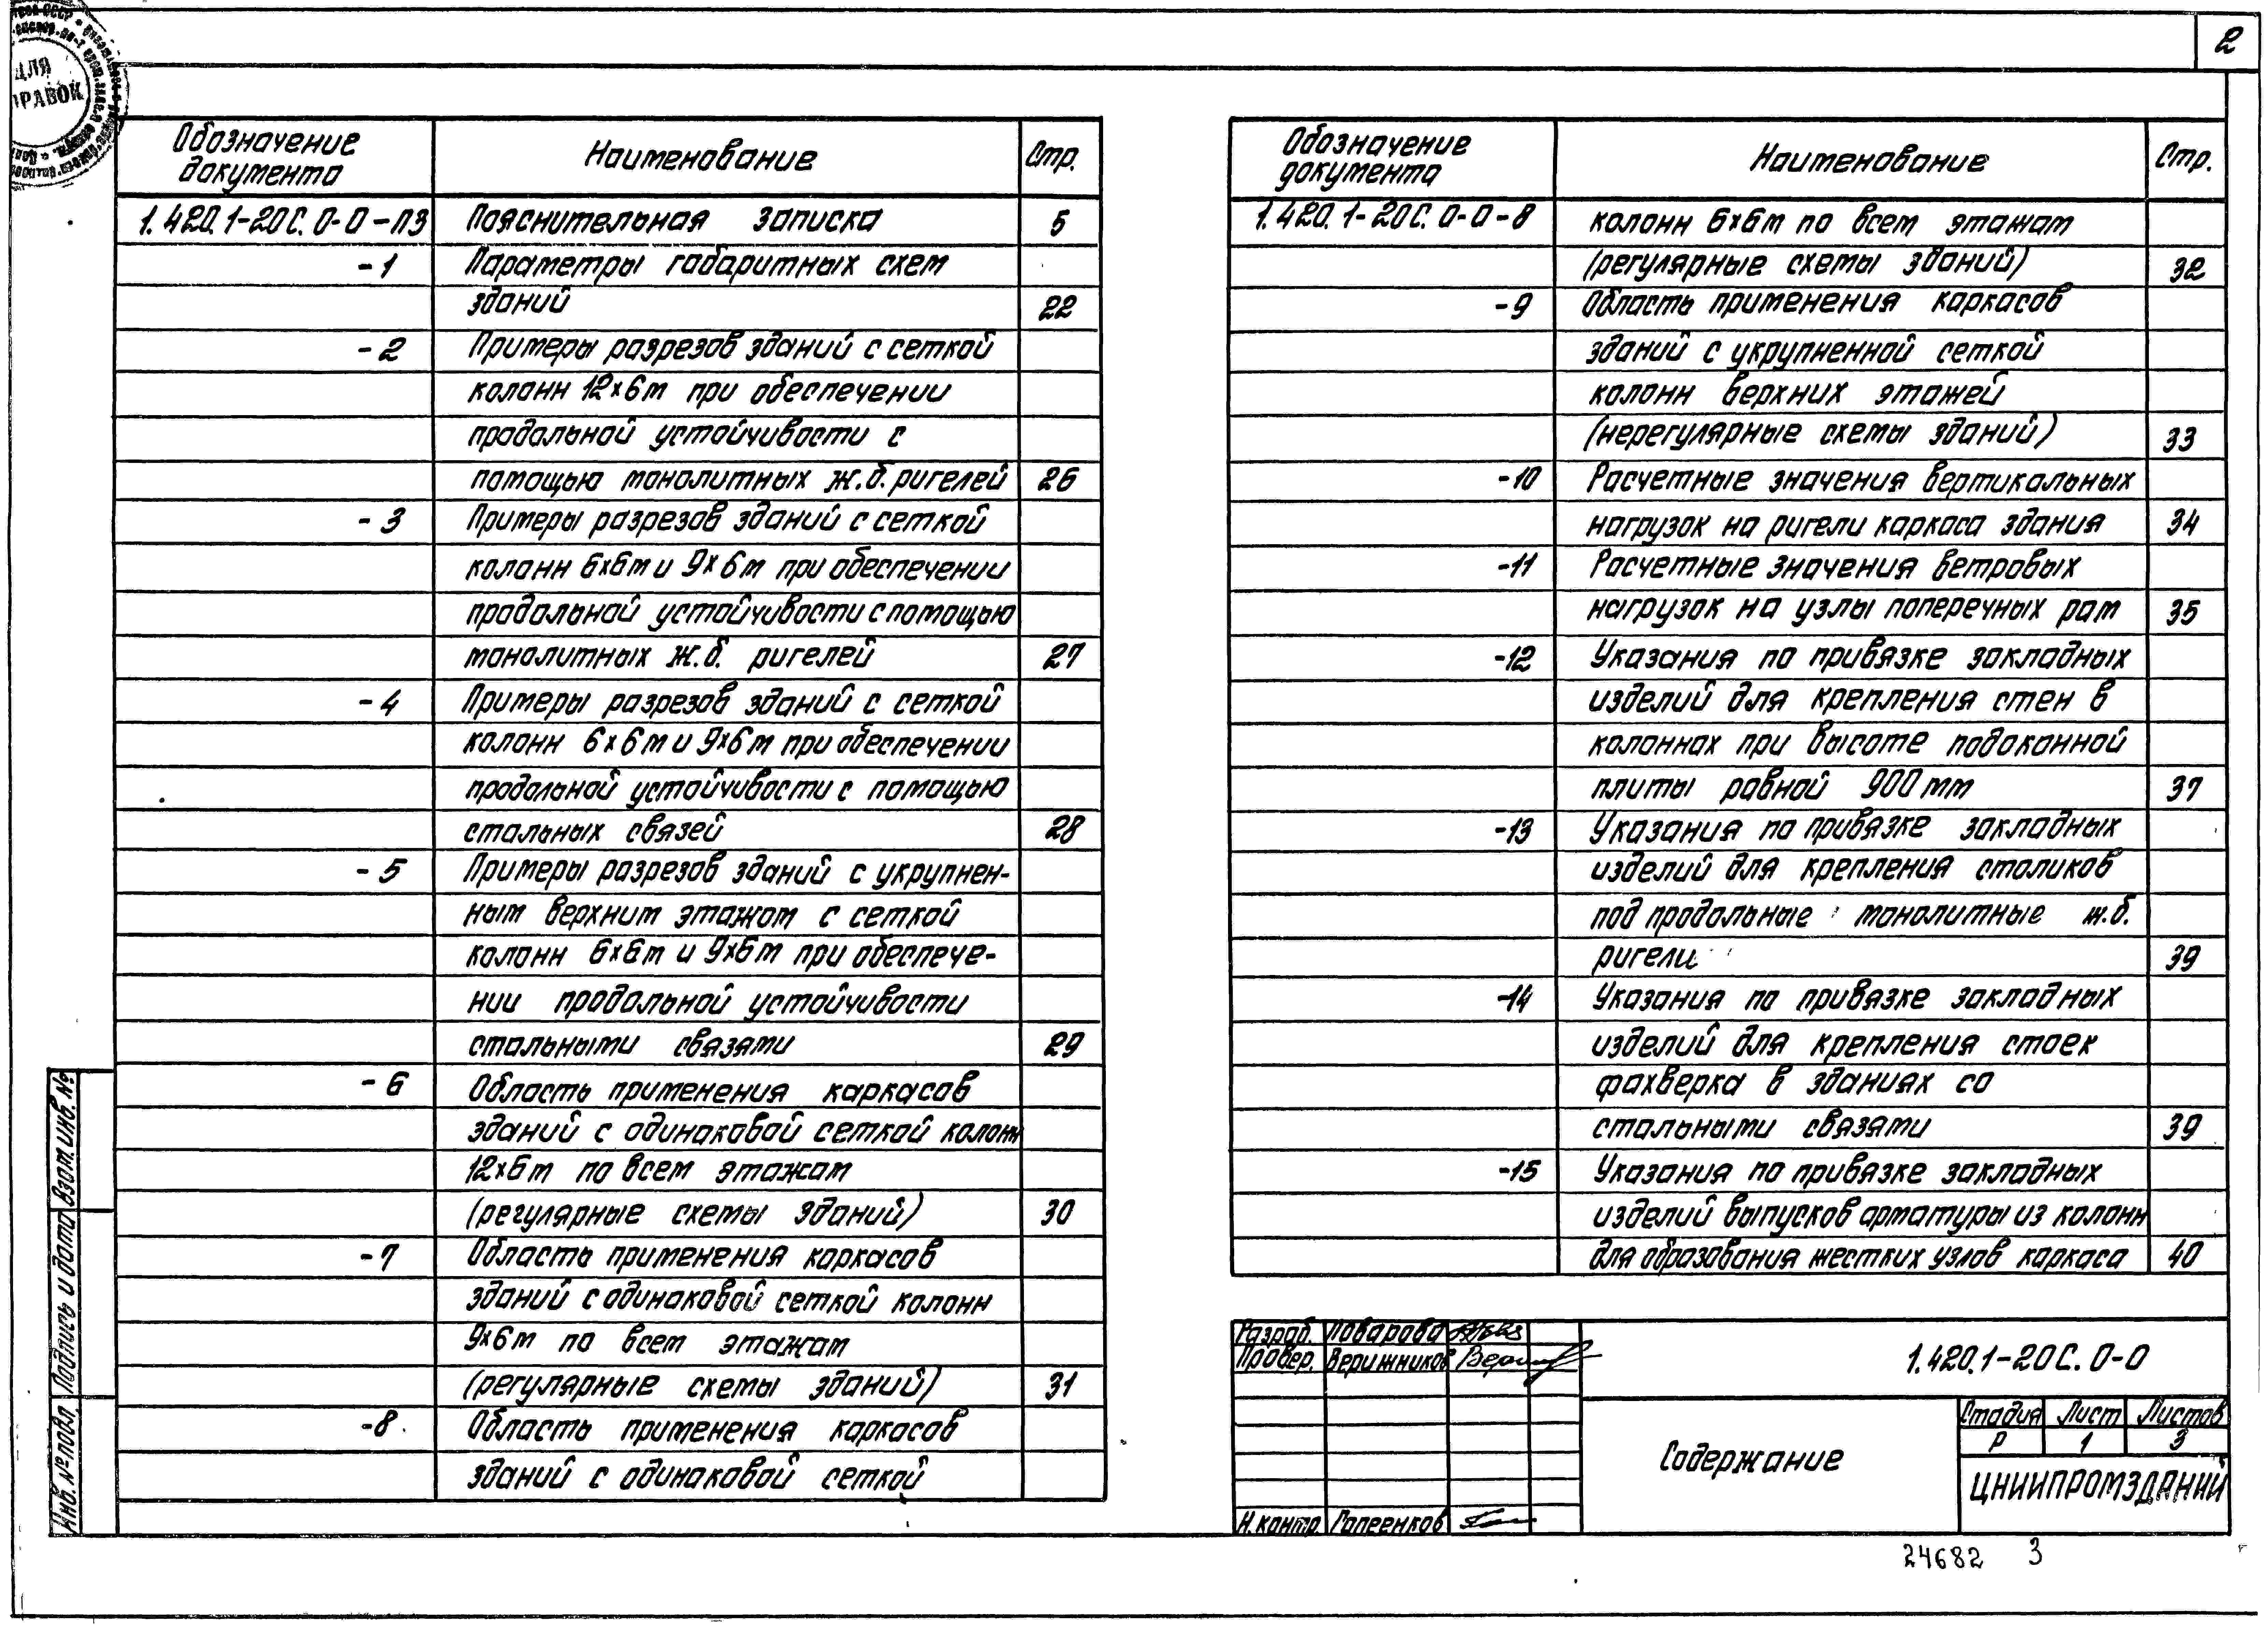 2
ДЛЯ
Обозначение
документа
Наименование
Стр.
1.420.1-20С.0-0-ПЗ Пояснительная записка 5
-1 Параметры габаритных схем
зданий 22
-2 Примеры разрезов зданий с сеткой
колонн 12х6м при обеспечении
продольной устойчивости с
помощью монолитных ж.б. ригелей 26
-3 Примеры разрезов зданий с сеткой
колонн 6х6м и 9х6м при обеспечении
продольной устойчивости с помощью
монолитных ж.б. ригелей 27
-4 Примеры разрезов зданий с сеткой
колонн 6х6м и 9х6м при обеспечении
продольной устойчивости с помощью
стальных связей 28
-5 Примеры разрезов зданий с укрупнен-
ным верхним этажом с сеткой
колонн 6х6м и 9х6м при обеспече-
нии продольной устойчивости
стальными связями 29
-6 Область применения каркасов
зданий с одинаковой сеткой колонн
12х6м по всем этажам
(регулярные схемы зданий) 30
-7 Область применения каркасов
зданий с одинаковой сеткой колонн
9х6м по всем этажам
(регулярные схемы зданий) 31
-8 Область применения каркасов
зданий с одинаковой сеткой
Обозначение
документа
Наименование
Стр.
1.420.1-20С.0-0-8 колонн 6х6м по всем этажам
(регулярные схемы зданий) 32
-9 Область применения каркасов
зданий с укрупненной сеткой
колонн верхних этажей
(нерегулярные схемы зданий) 33
-10 Расчетные значения вертикальных
нагрузок на ригели каркаса здания 34
-11 Расчетные значения ветровых
нагрузок на узлы поперечных рам 35
-12 Указания по привязке закладных
изделий для крепления стен в
колоннах при высоте подоконной
плиты равной 900мм 37
-13 Указания по привязке закладных
изделий для крепления столиков
под продольные монолитные ж.б.
ригели 39
-14 Указания по привязке закладных
изделий для крепления стоек
фахверка в зданиях со
стальными связями 39
-15 Указания по привязке закладных
изделий выпусков арматуры из колонн
для образования жестких узлов каркаса 40
Разраб. Поварова
Провер. Верижников
Н.контр. Гапеенков
1.420.1-20С.0-0
Содержание
Стадия Лист Листов
Р 1 3
ЦНИИПРОМЗДАНИЙ
24682 3
Взам. инв. №
Подпись и дата
Инв. № подл.